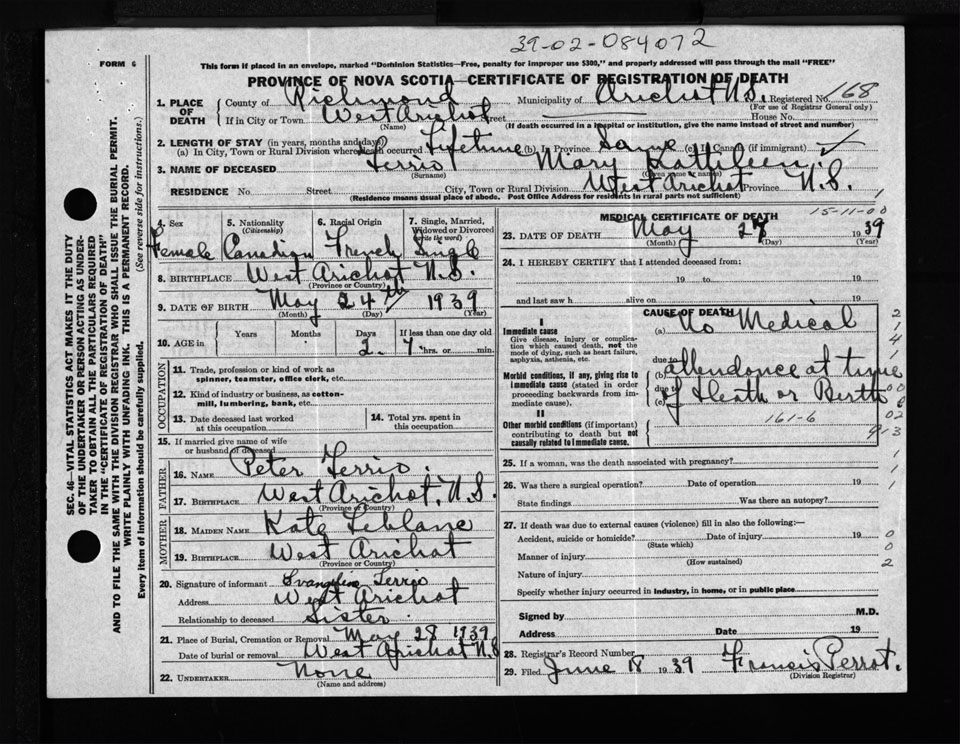 39-02-084072
FORM 6
This form if placed in an envelope, marked "Dominion Statistics—Free, penalty for improper use $300," and properly addressed will pass through the mail "FREE"
PROVINCE OF NOVA SCOTIA—CERTIFICATE OF REGISTRATION OF DEATH
1. PLACE OF DEATH
County of Richmond Municipality of Arichat N.S. Registered No. 168
(For use of Registrar General only)
If in City or Town West Arichat Street House No.
(Name) (If death occurred in a hospital or institution, give the name instead of street and number)
2. LENGTH OF STAY (in years, months and days)
(a) In City, Town or Rural Division where death occurred Lifetime (b). In Province Same (c) In Canada (if immigrant)
3. NAME OF DECEASED Terrio Mary Kathileen.
(Surname) (Given name or names)
RESIDENCE No. Street City, Town or Rural Division West Arichat Province N.S.
(Residence means usual place of abode. Post Office Address for residents in rural parts not sufficient)
4. Sex 5. Nationality 6. Racial Origin 7. Single, Married, Widowed or Divorced
(Citizenship) (Write the word)
Female Canadian French Single
8. BIRTHPLACE West Arichat N.S.
(Province or Country)
9. DATE OF BIRTH May 24th 1939
(Month) (Day) (Year)
10. AGE in Years Months Days If less than one day old
2. 7 hrs. or min.
OCCUPATION
11. Trade, profession or kind of work as spinner, teamster, office clerk, etc.
12. Kind of industry or business, as cotton-mill, lumbering, bank, etc.
13. Date deceased last worked at this occupation
14. Total yrs. spent in this occupation
15. If married give name of wife or husband of deceased
FATHER
16. NAME Peter Terrio.
17. BIRTHPLACE West Arichat, N.S.
(Province or Country)
MOTHER
18. MAIDEN NAME Kate Leblanc
19. BIRTHPLACE West Arichat
(Province or Country)
20. Signature of informant Evangeline Terrio
Address West Arichat
Relationship to deceased Sister
21. Place of Burial, Cremation or Removal May 28 1939
Date of burial or removal West Arichat N.S.
22. UNDERTAKER None
(Name and address)
MEDICAL CERTIFICATE OF DEATH
15-11-00
23. DATE OF DEATH May 1939
(Month) (Day) (Year)
24. I HEREBY CERTIFY that I attended deceased from:
19 to 19
and last saw h alive on 19
CAUSE OF DEATH
I
Immediate cause
Give disease, injury or complication which caused death, not the mode of dying, such as heart failure, asphyxia, asthenia, etc.
(a) No Medical
due to
(b) attendance at time
due to
(c) of Death or Birth
Morbid conditions, if any, giving rise to immediate cause (stated in order proceeding backwards from immediate cause).
II
Other morbid conditions (if important) contributing to death but not causally related to immediate cause.
161-6
25. If a woman, was the death associated with pregnancy?
26. Was there a surgical operation? Date of operation 19
State findings Was there an autopsy?
27. If death was due to external causes (violence) fill in also the following:—
Accident, suicide or homicide? Date of injury 19
(State which)
Manner of injury
(How sustained)
Nature of injury
Specify whether injury occurred in industry, in home, or in public place
Signed by M.D.
Address Date 19
28. Registrar's Record Number
29. Filed June 1939 Francis Perrot.
(Division Registrar)
SEC. 46—VITAL STATISTICS ACT MAKES IT THE DUTY
OF THE UNDERTAKER OR PERSON ACTING AS UNDER-
TAKER TO OBTAIN ALL THE PARTICULARS REQUIRED
IN THE "CERTIFICATE OF REGISTRATION OF DEATH"
AND TO FILE THE SAME WITH THE DIVISION REGISTRAR WHO SHALL ISSUE THE BURIAL PERMIT.
WRITE PLAINLY WITH UNFADING INK. THIS IS A PERMANENT RECORD.
Every item of Information should be carefully supplied. (See reverse side for instructions.)